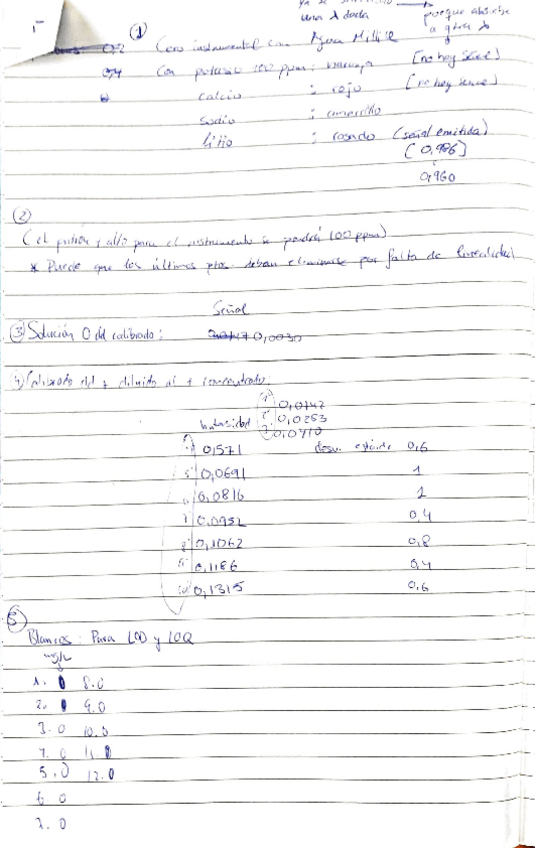 una λ dada
porque absorbe
a otra λ
①
Cero instrumental con Agua MilliQ
Con potasio 100 ppm : naranja [no hay señal]
calcio : rojo (no hay señal)
sodio : amarillo
litio : rosado (señal emitida)
(0,986)
0,960
②
(el patrón + alto para el instrumento se pondrá 100 ppm)
* Puede que los últimos ptos. deban eliminarse por falta de linealidad
Señal
③ Solución 0 del calibrado: 0,0030
4) Calibrado del + diluido al + concentrado:
1 0,0147
Intensidad 2 0,0253
3 0,0410
0,571 desv. estándar 0,6
5 0,0691 1
6 0,0816 1
7 0,0952 0,4
8 0,1062 0,8
0,1186 0,4
10 0,1315 0,6
⑤
Blancos: Para LOD y LOQ
mg/L
1. 0 8.0
2. 0 9.0
3. 0 10.0
4. 0 11.0
5. 0 12.0
6. 0
7. 0